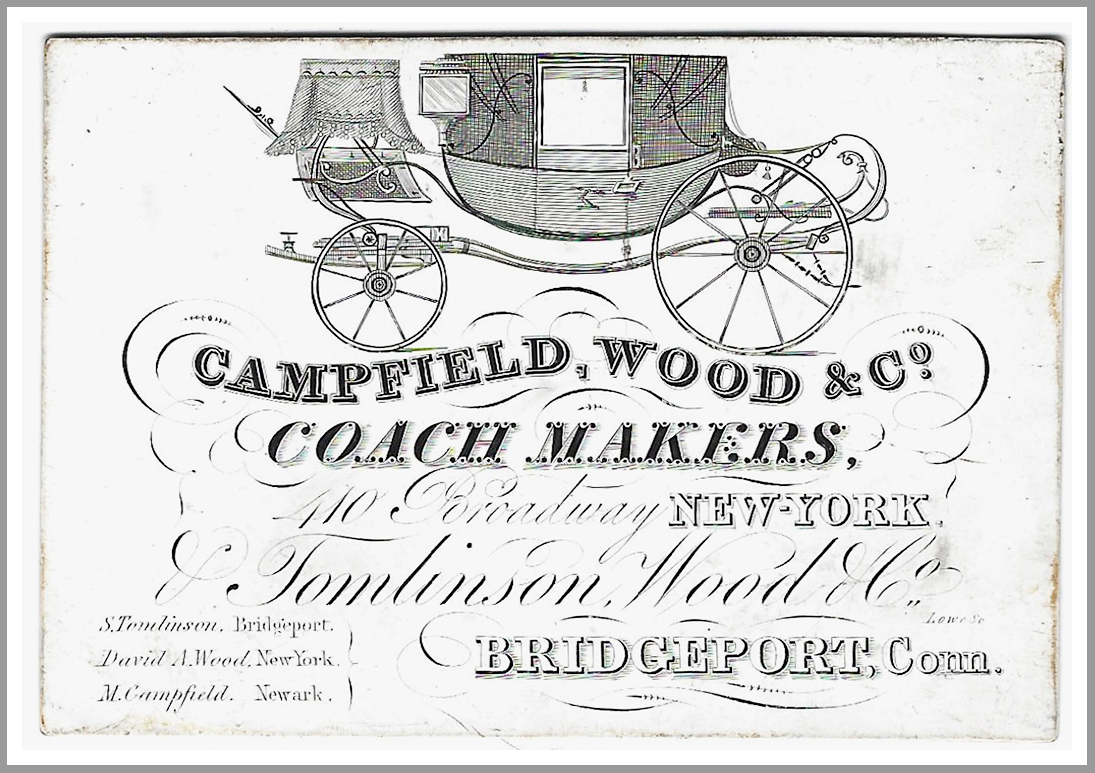 CAMPFIELD, WOOD & Co
COACH MAKERS,
410 Broadway NEW-YORK.
& Tomlinson, Wood & Co.,
BRIDGEPORT, Conn.
S. Tomlinson, Bridgeport.
David A. Wood, New York.
M. Campfield. Newark.